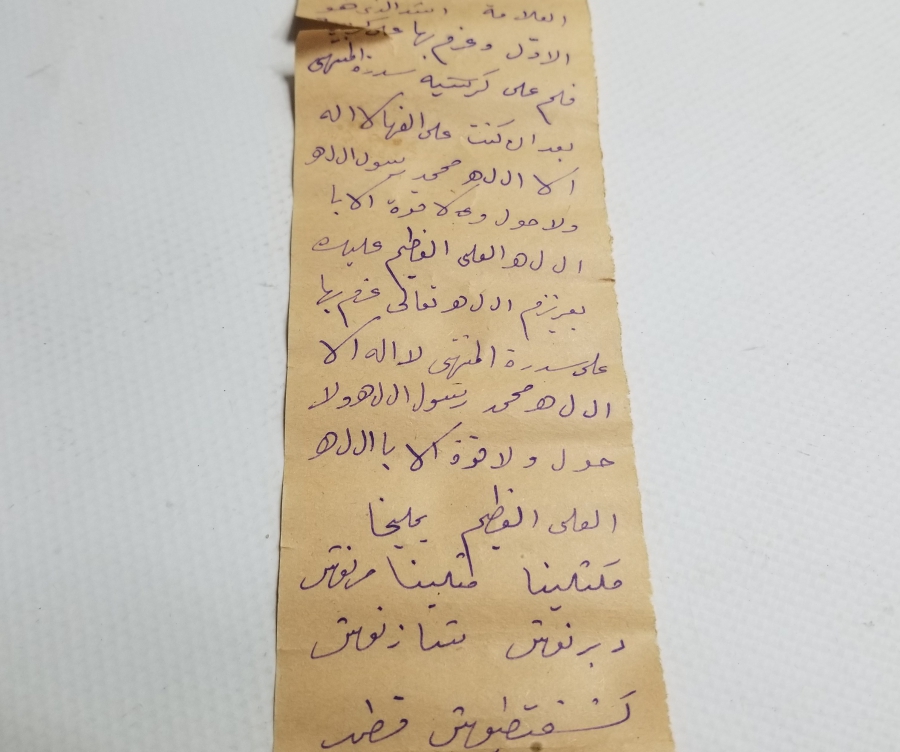 العلامة
الاول وعزم بها على
قلم على كرسيه سدرة المنتهى
بعد ان كنت على الفها لا اله
الا ال ل ه محمد رسول ال ل ه
ولا حول ولا قوة الا با
ال ل ه العلى العظيم عليك
بعزيزم ال ل ه تعالى عزم بها
على سدرة المنتهى لا اله الا
ال ل ه محمد رسول ال ل ه ولا
حول ولا قوة الا با ال ل ه
العلى العظيم يمليخا
مكثلينا مثلينا مرنوش
دبرنوش شازنوش
كشفتطيوش قطمير